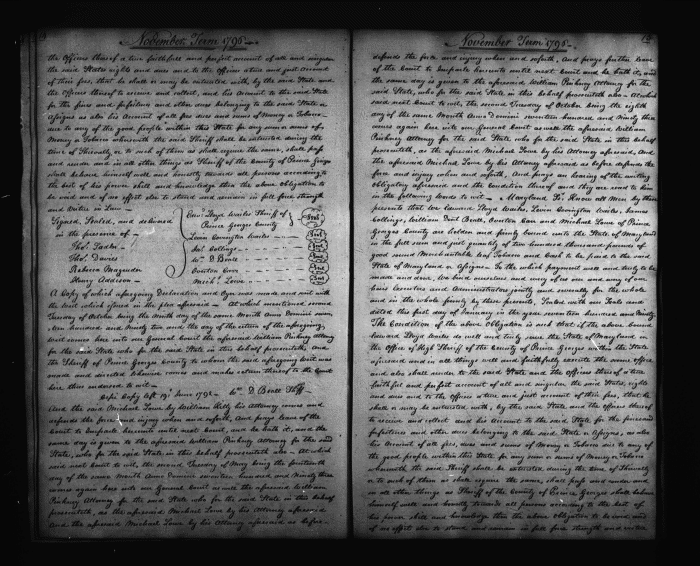 November Term 1795
the Offices thereof a true faithfull and perfect account of all and singular
the said States rights and dues and to the Officers a true and just account
of their fees, that he shall or may be intrusted with, by the said State and
the Officers thereof to secure and collect, and his Account to the said State
for the fines and forfeitures and other dues belonging to the said State or
Assigns as also his Account of all fees dues and sums of Money or Tobacco
due to any of the good people within this State for any sum or sums of
Money or Tobacco wherewith the said Sheriff shall be intrusted during the
time of Sherivalty or to such of them as shall require the same, shall pass
and render and in all other things as Sheriff of the County of Prince Georges
shall behave himself well and honestly towards all persons according to
the best of his power skill and knowledge then the above obligation to
be void and of no effect else to stand and remain in full force strength
and virtue in Law
Signed, Sealed, and delivered
in the presence of
Thos. Davies
Rebecca Magruder
Henry Addison
Lloyd Wailes Sheriff of
Prince Georges County
Seal
Levin Covington Wailes
Seal
Jas. Collings
Seal
Wm. D. Beall
Seal
Overton Carr
Seal
Michl. Lowe
Seal
A Copy of which aforegoing Declaration and was made and sent with
the Writ which issued in the plea aforesaid At which mentioned second
Tuesday of October being the Ninth day of the same Month Anno Domini seven
teen hundred and Ninety two and the day of the return of the aforegoing
Writ comes here into our General Court the aforesaid William Pinkney Attorney
for the said State who for the said State in this behalf prosecuteth, and
the Sheriff of Prince Georges County to whom the said aforegoing Writ was
made and directed likewise comes and makes return thereof to the Court
here thus endorsed to wit
Cepi Copy left 19th June 1792 Wm. D. Beall Shff
And the said Michael Lowe by William his Attorney comes and
defends the force and injury when and soforth, And prays leave of the
Court to Imparle thereunto until next Court, and he hath it, and the
same day is given to the aforesaid William Pinkney Attorney for the said
State, who for the said State in this behalf prosecuteth also At which
said next Court to wit, the second Tuesday of May being the fourteenth
day of the same Month Anno Domini seventeen hundred, and Ninety three
comes again here into our General Court as well the aforesaid William
Pinkney Attorney for the said State who for the said State in this behalf
prosecuteth, as the aforesaid Michael Lowe by his Attorney aforesaid
And the aforesaid Michael Lowe by his Attorney aforesaid as before
November Term 1795
defends the force and injury when and soforth, And prays further leave
of the Court to Imparle thereunto until next Court and he hath it, and
the same day is given to the aforesaid William Pinkney Attorney for the
said State, who for the said State in this behalf prosecuteth also At which
said next Court to wit, the second Tuesday of October being the eighth
day of the same Month Anno Domini seventeen hundred, and Ninety three
comes again here into our General Court as well the aforesaid William
Pinkney Attorney for the said State who for the said State in this behalf
prosecuteth, as the aforesaid Michael Lowe by his Attorney aforesaid, And
the aforesaid Michael Lowe by his Attorney aforesaid as before defends the
force and injury when and soforth, And prays an hearing of the writing
obligatory aforesaid and the Condition thereof and they are read to him
in the following words to wit Maryland Sc. Know all Men by these
presents that we Lloyd Wailes, Levin Covington Wailes, James
Collings, William Dent Beall, Overton Carr and Michael Lowe of Prince
Georges County are holden and firmly bound unto the State of Maryland
in the full sum and just quantity of two hundred thousand pounds of
good sound Merchantable leaf Tobacco and Cask to be paid to the said
State of Maryland or Assigns. To the which payment well and truly to be
made and done, We bind ourselves and every of us our and every of our
heirs Executors and Administrators jointly and severally for the whole
and in the whole firmly by these presents, Sealed with our Seals and
dated this first day of January in the year seventeen hundred and Ninety
The Condition of the above Obligation is such that if the above bound
Lloyd Wailes do well and truly serve the State of Maryland in
the Office of High Sheriff of the County of Prince Georges within the State
aforesaid and in all things well and faithfully execute the same office
and also shall render to the said State and the Officers thereof a true
faithful and perfect account of all and singular the said States, rights
and dues and to the Officers a true and just account of their fees, that he
shall or may be intrusted with, by the said State and the Officers thereof
to secure and collect and his Account to the said State for the fines and
forfeitures and other dues belonging to the said State or Assigns, as also
his Account of all fees, dues and sums of Money or Tobacco due to any of
the good people within this State for any sum or sums of Money or Tobacco
wherewith the said Sheriff shall be intrusted during the time of Sherivalty
or to such of them as shall require the same, shall pass and render and
in all other things as Sheriff of the County of Prince Georges shall behave
himself well and honestly towards all persons according to the best of
his power skill and knowledge then the above obligation to be void and
of no effect else to stand and remain in full force strength and virtue